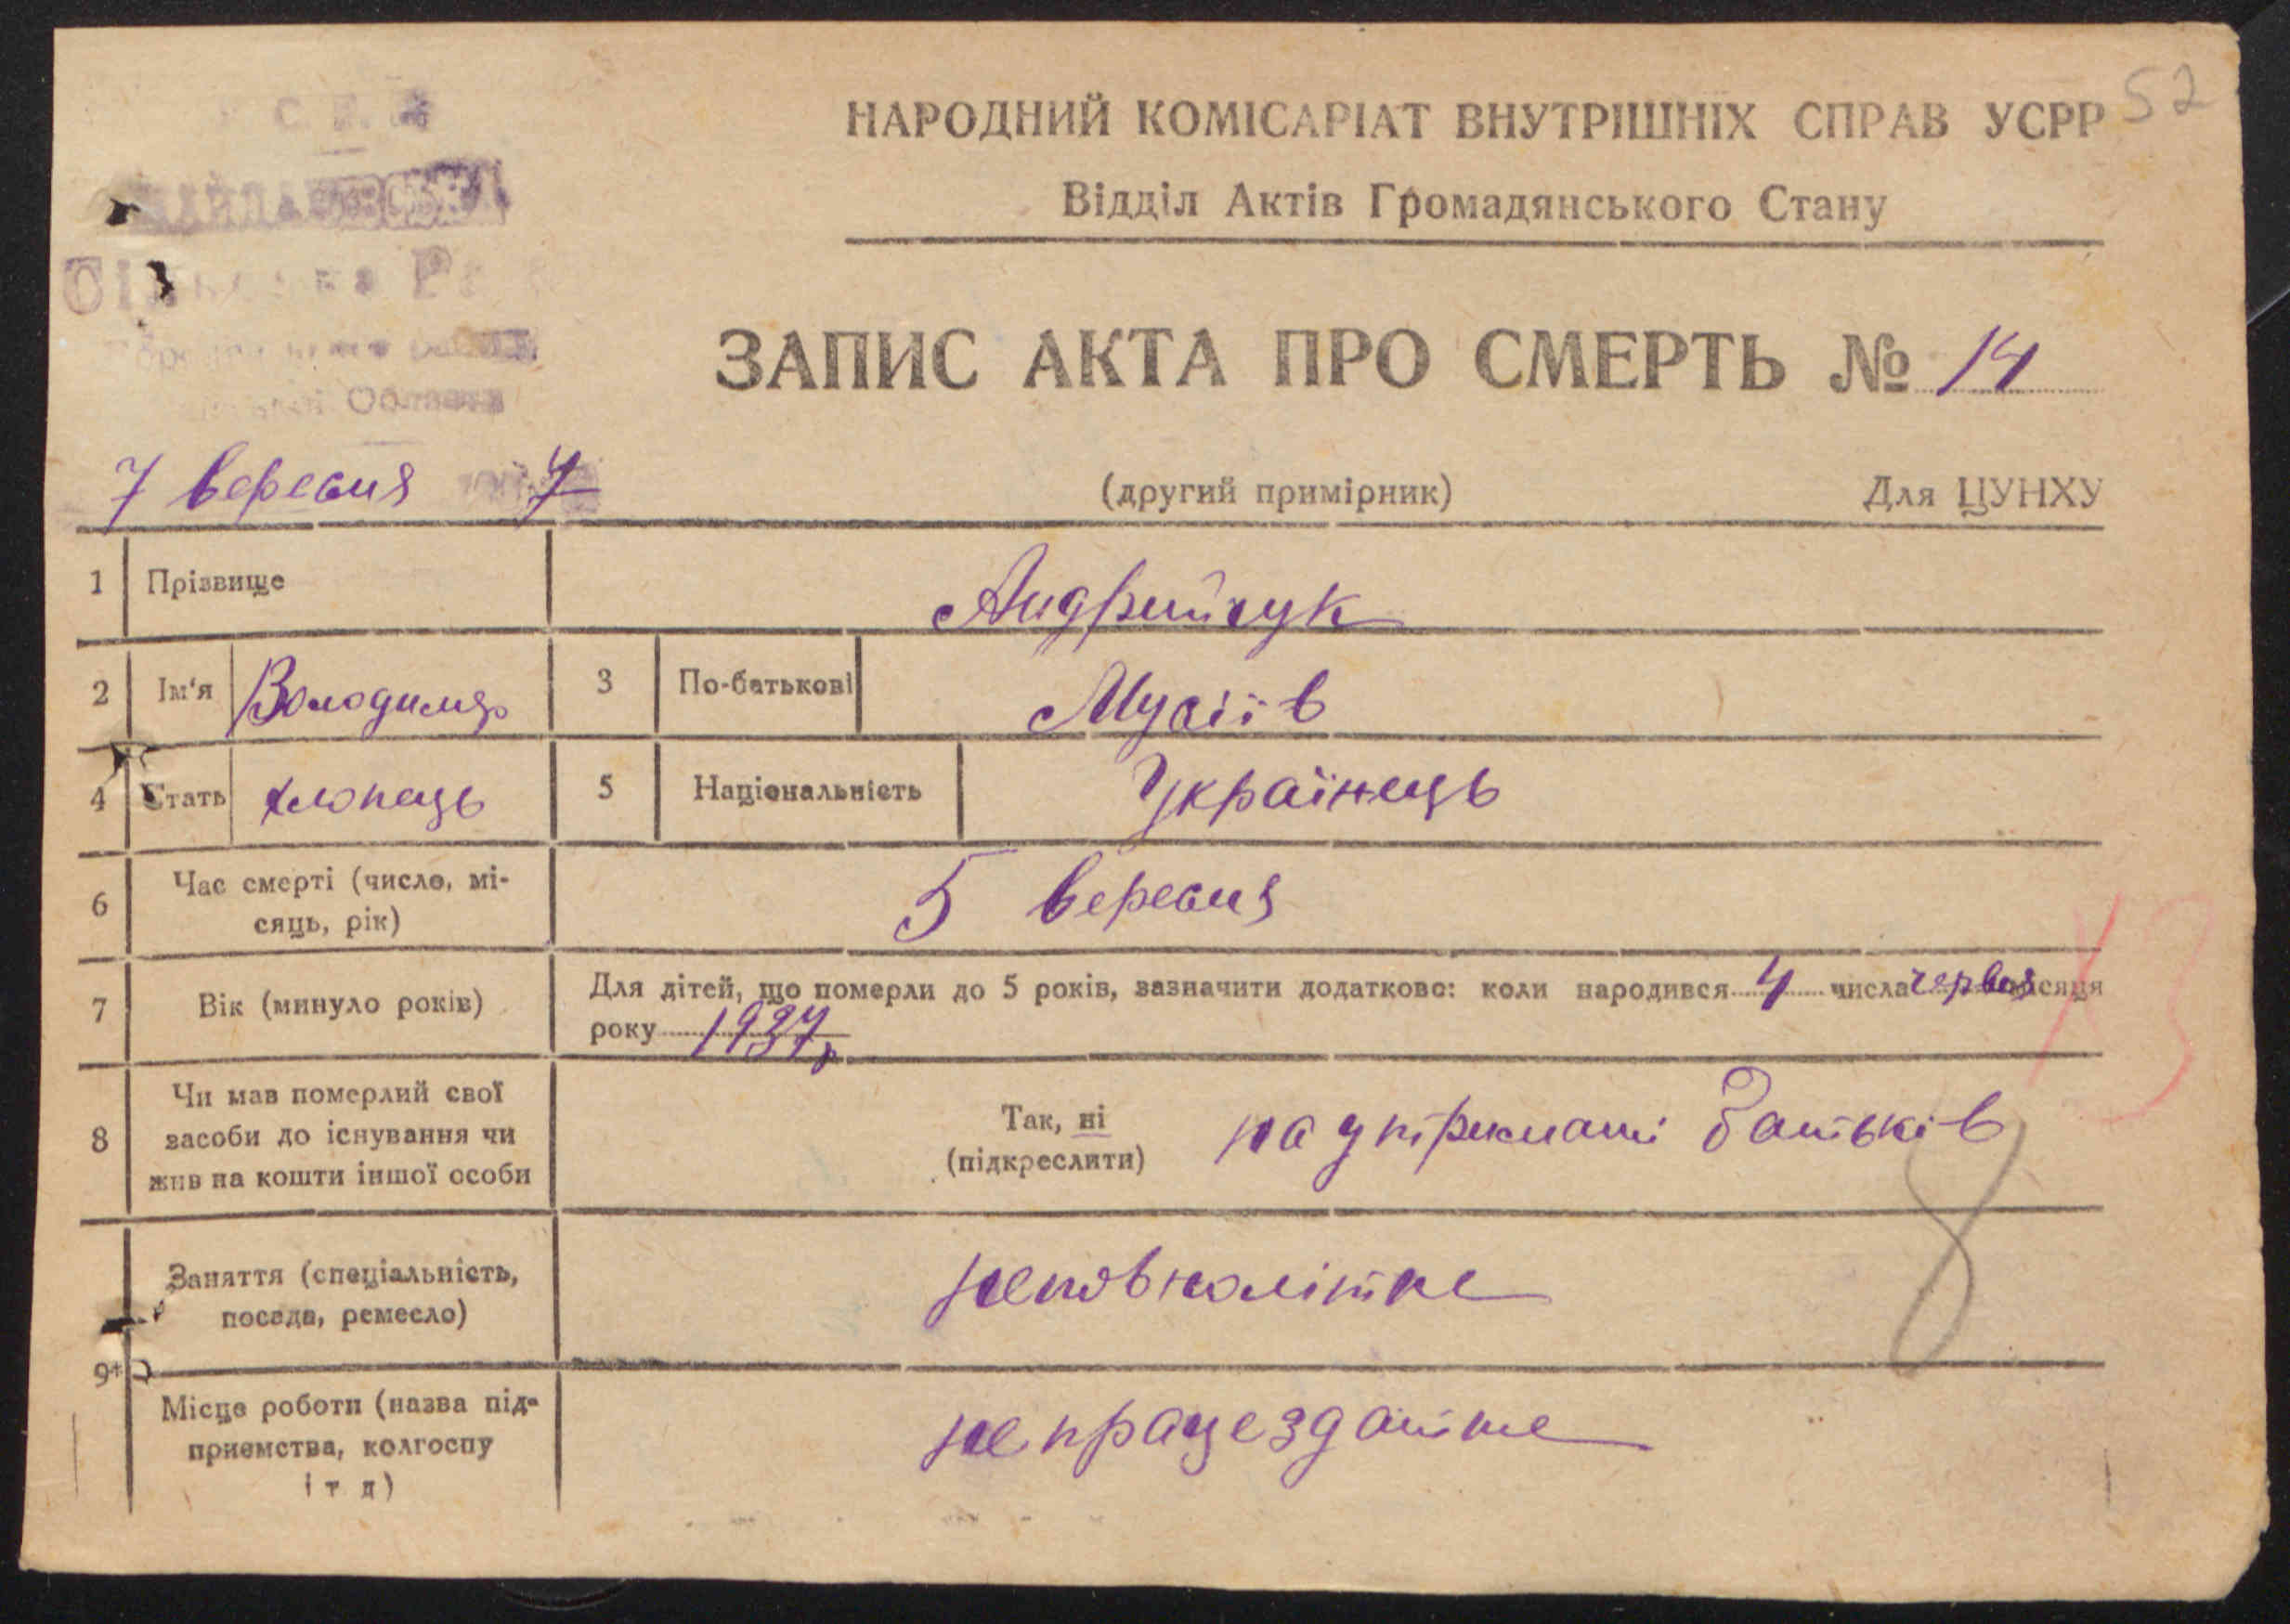 52
НАРОДНИЙ КОМІСАРІАТ ВНУТРІШНІХ СПРАВ УСРР
Відділ Актів Громадянського Стану
ЗАПИС АКТА ПРО СМЕРТЬ № 14
Області
7 вересня 7
(другий примірник) Для ЦУНХУ
1 Прізвище Андрийчук
2 Ім'я Володимир 3 По-батькові Мусіїв
4 Стать хлопець 5 Національність Українець
6 Час смерті (число, мі-
сяць, рік) 5 вересня
7 Вік (минуло років) Для дітей, що померли до 5 років, зазначити додатково: коли народився 4 числа червня місяця
року 1937р
8 Чи мав померлий свої
засоби до існування чи
жив на кошти іншої особи
Так, ні
(підкреслити) на утриманні батьків
Заняття (спеціальність,
посада, ремесло) неповнолітнє
9*
Місце роботи (назва під-
приємства, колгоспу
і т д) непрацездатне